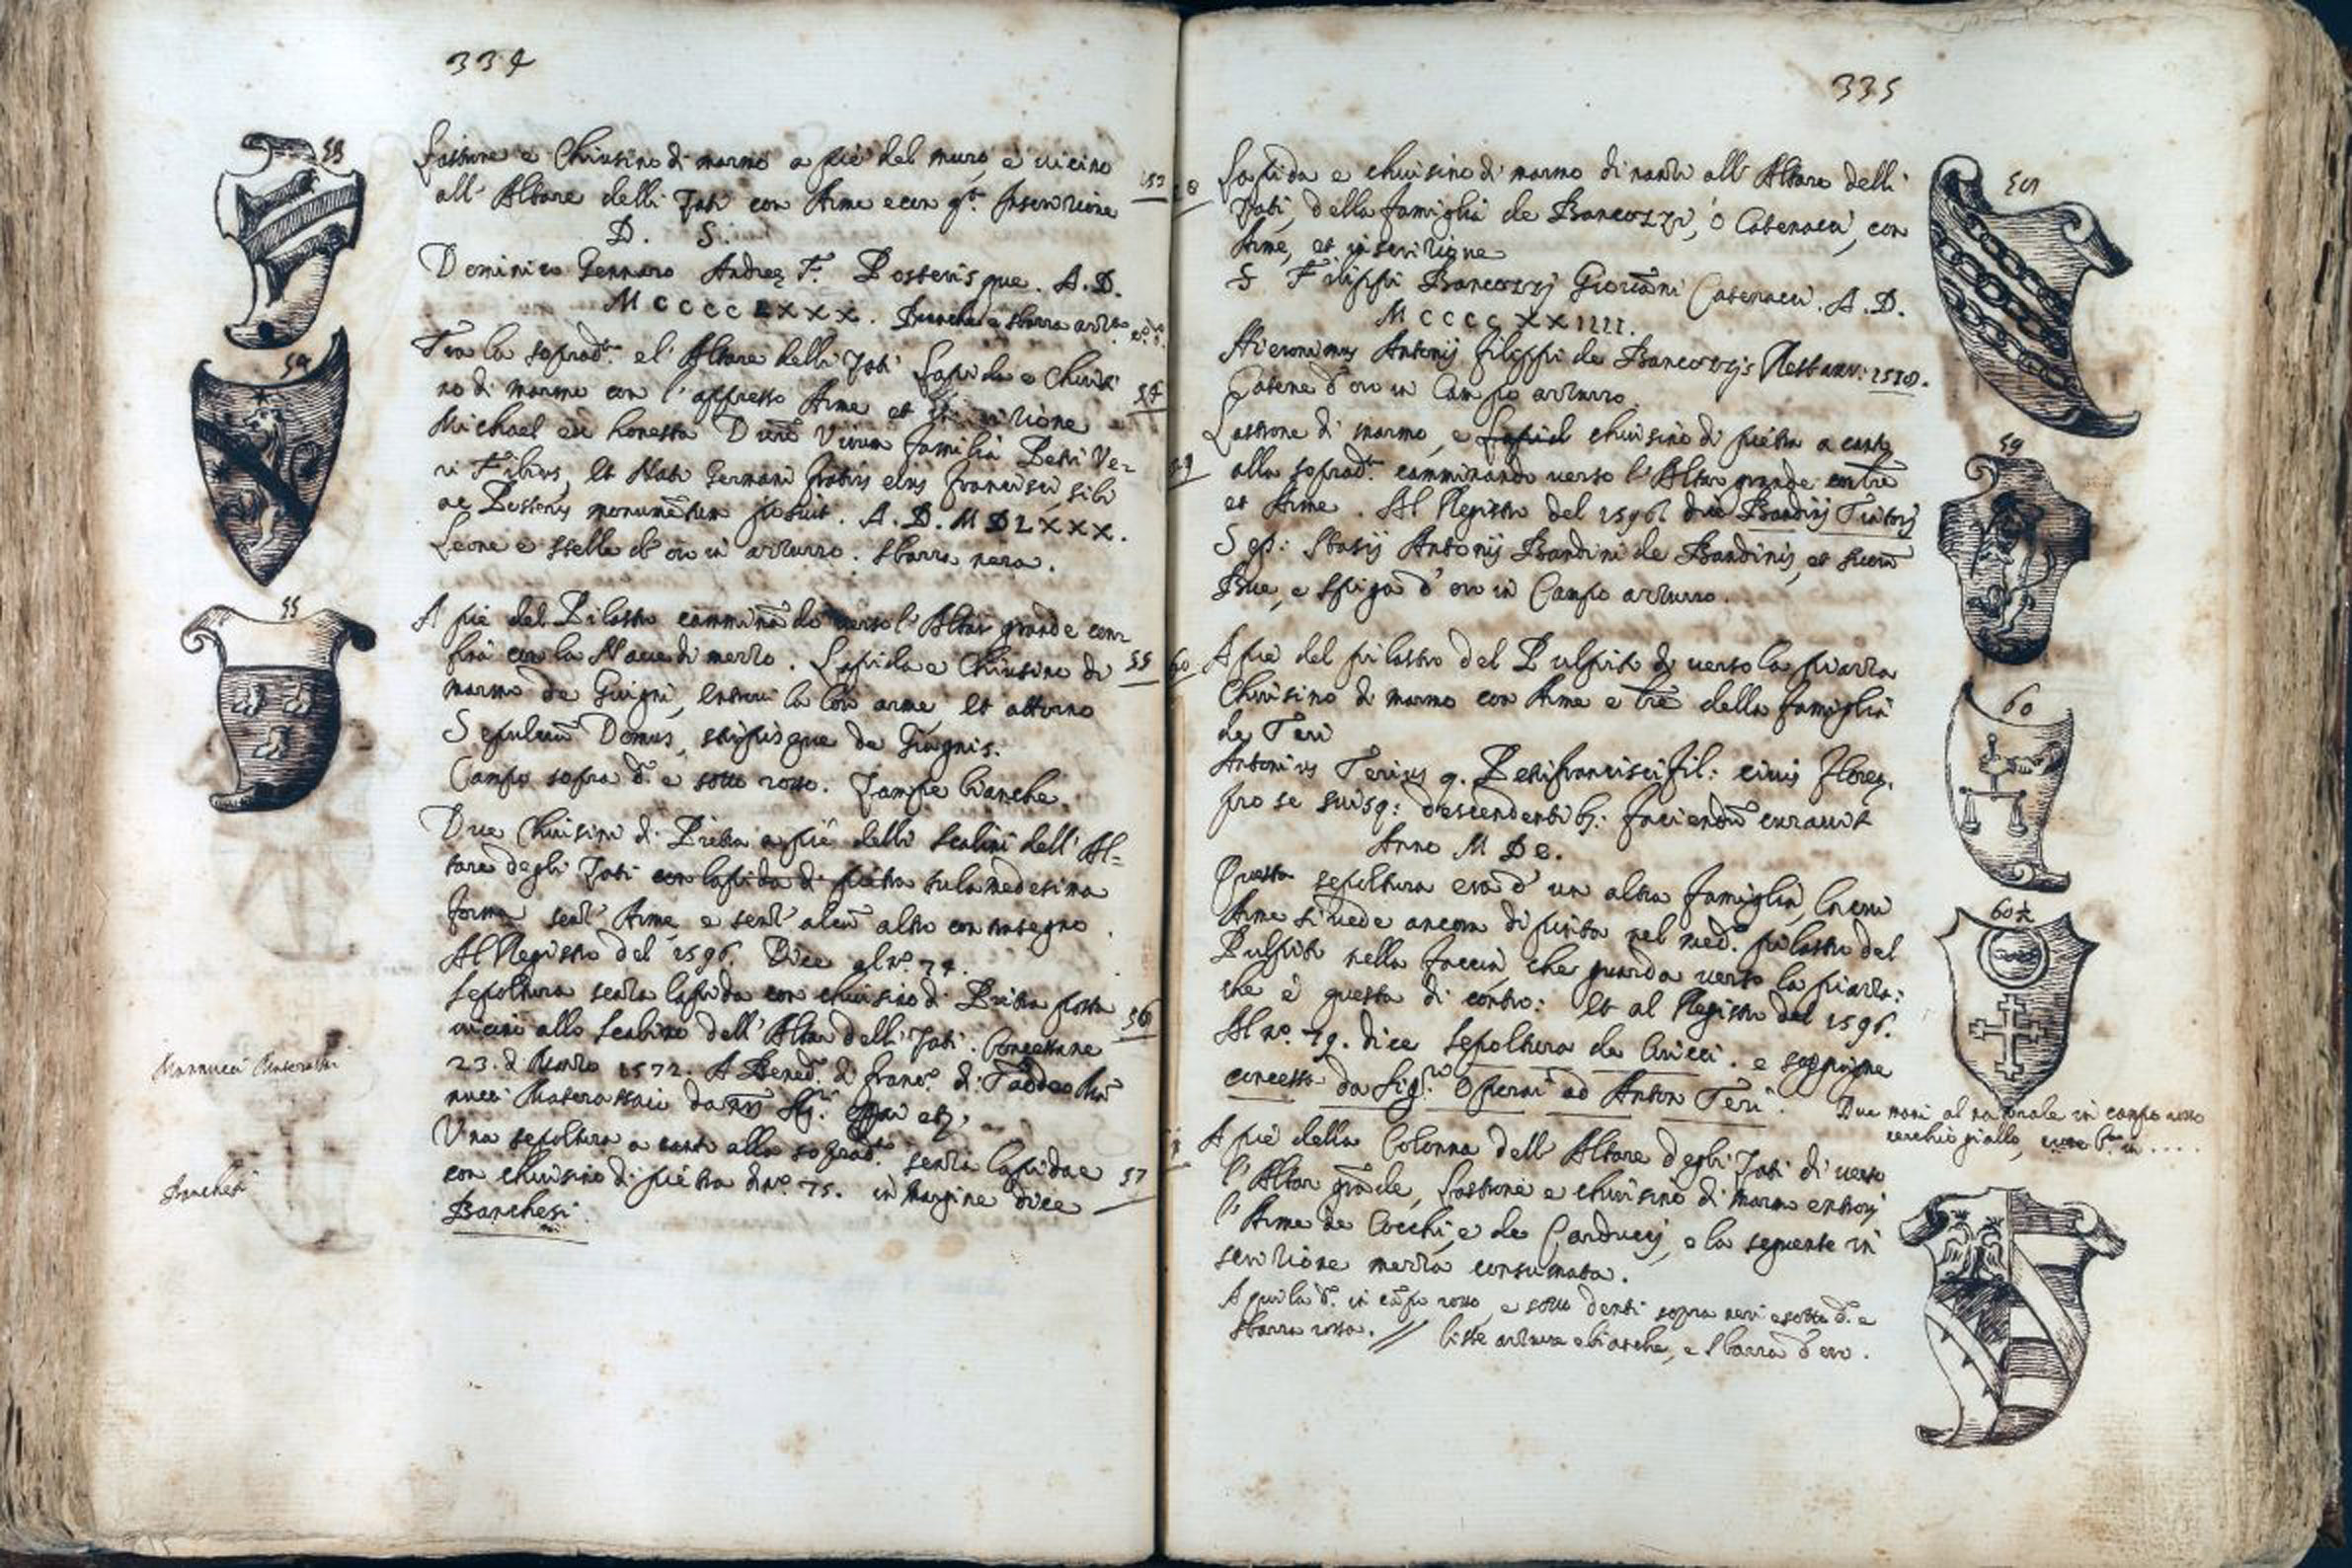 334
53
Lastrone e Chiusino di marmo a piè del muro, e vicino
all' Altare delli Zati con Arme e con q.ta Inscrizione
D. S.
Dominico Gennaro Andreę F. Posterisque. A. D.
M C C C C L X X X. Bianche e sbarra azz.
Tra la soprad.ta e l' Altare delli Zati Lapida e Chiusi
no di marmo con l' appresso Arme et inscrizione
54
Michael ex honesta Viviva familia Petri Ve-
ri Filius, et Nati Germani fratris eius Francisci, sibi
ac Posteris monumētum posuit. A. D. M D L X X X.
Leone e stella d' oro in azzurro. sbarra nera.
A piè del Pilastro camminādo verso l' Altar grande con
fina con la Nave di mezzo. Lapida e Chiusino di
55
marmo de Giugni, entrovi la loro arme, et attorno
Sepulcrū Domus, stirpisque de Giugnis.
Campo sopra d. e sotto rosso. Zampe bianche.
Due Chiusini di Pietra a piè delli scalini dell' Al=
tare degli Zati con lapida di pietra su la medesima
forma senz' Arme, e senz' alcū altro contrasegno.
Al Registro del 1596. Dice al n.o 74.
Sepoltura senza lapida con chiusino di Pietra posta
56
vicino allo scalino dell' Altar delli Zati. Concessane
23. d Marzo 1572. A Bened.o di Franc.o di Taddeo Mā
nucci Materassaio da
Mannucci Materassai
Una sepoltura a canto alla soprad.ta senza lapida e
57
con chiusino di piétra d n.o 75. in margine dice
Banchesi
Banchesi
335
58
Lapida e chiusino di marmo di nanzi all' Altare delli
Zati, della famiglia de Bancozzi, ò Catenacci, con
Arme, et inscrizione
S Filippi Bancozzj Giovāni Catenacci. A. D.
M C C C C X X I I I I.
Hieronimus Antonij Filippi de Bancozzjs Rest. ann: 1518.
Catene d' oro in Campo azzurro.
59
Lastrone di marmo, e Lapid chiusino di pietra a canto
alla soprad.ta camminando verso l' Altar grande con tre
et Arme. Al Registro del 1596. dice Bandinj Tintorj
Sep: Stasij Antonij Bandini de Bandinis, et suorū
Bue, e spiga d' oro in Campo azzurro.
60
A piè del pilastro del Pulpito di verso la piazza
Chiusino di marmo con Arme e tre della famiglia
de Teri
Antonius Terius q. Petrifrancisci fil: civis Floren.
pro se suisq: descendentib9: faciendū curavit
Anno M D C.
60½
Questa sepoltura era d' un altra famiglia, la cui
Arme si vede ancora dipinta nel med.o pilastro del
Pulpito nella faccia, che guarda verso la piazza:
che è questa di cóntro: Et al Registro del 1596.
Al n.o 79. dice Sepoltura de Cricci. e soggiugne
concessa da Sig.ri Operai ad Anton Teri.
Due mani al naturale in campo rosso
cerchio giallo, croce b.ca in ....
A piè della Colonna dell' Altare degli Zati di verso
l' Altar grāde, Lastrone e chiusino di marmo entrovj
l' Arme de Cocchi, e de Carduccj, e la seguente in
scrizione mezza consumata.
Aquila d. in cāpo rosso e sotto denti sopra neri e sotto d. e
sbarra rossa. // liste azzurre e bianche, e sbarra d' oro.